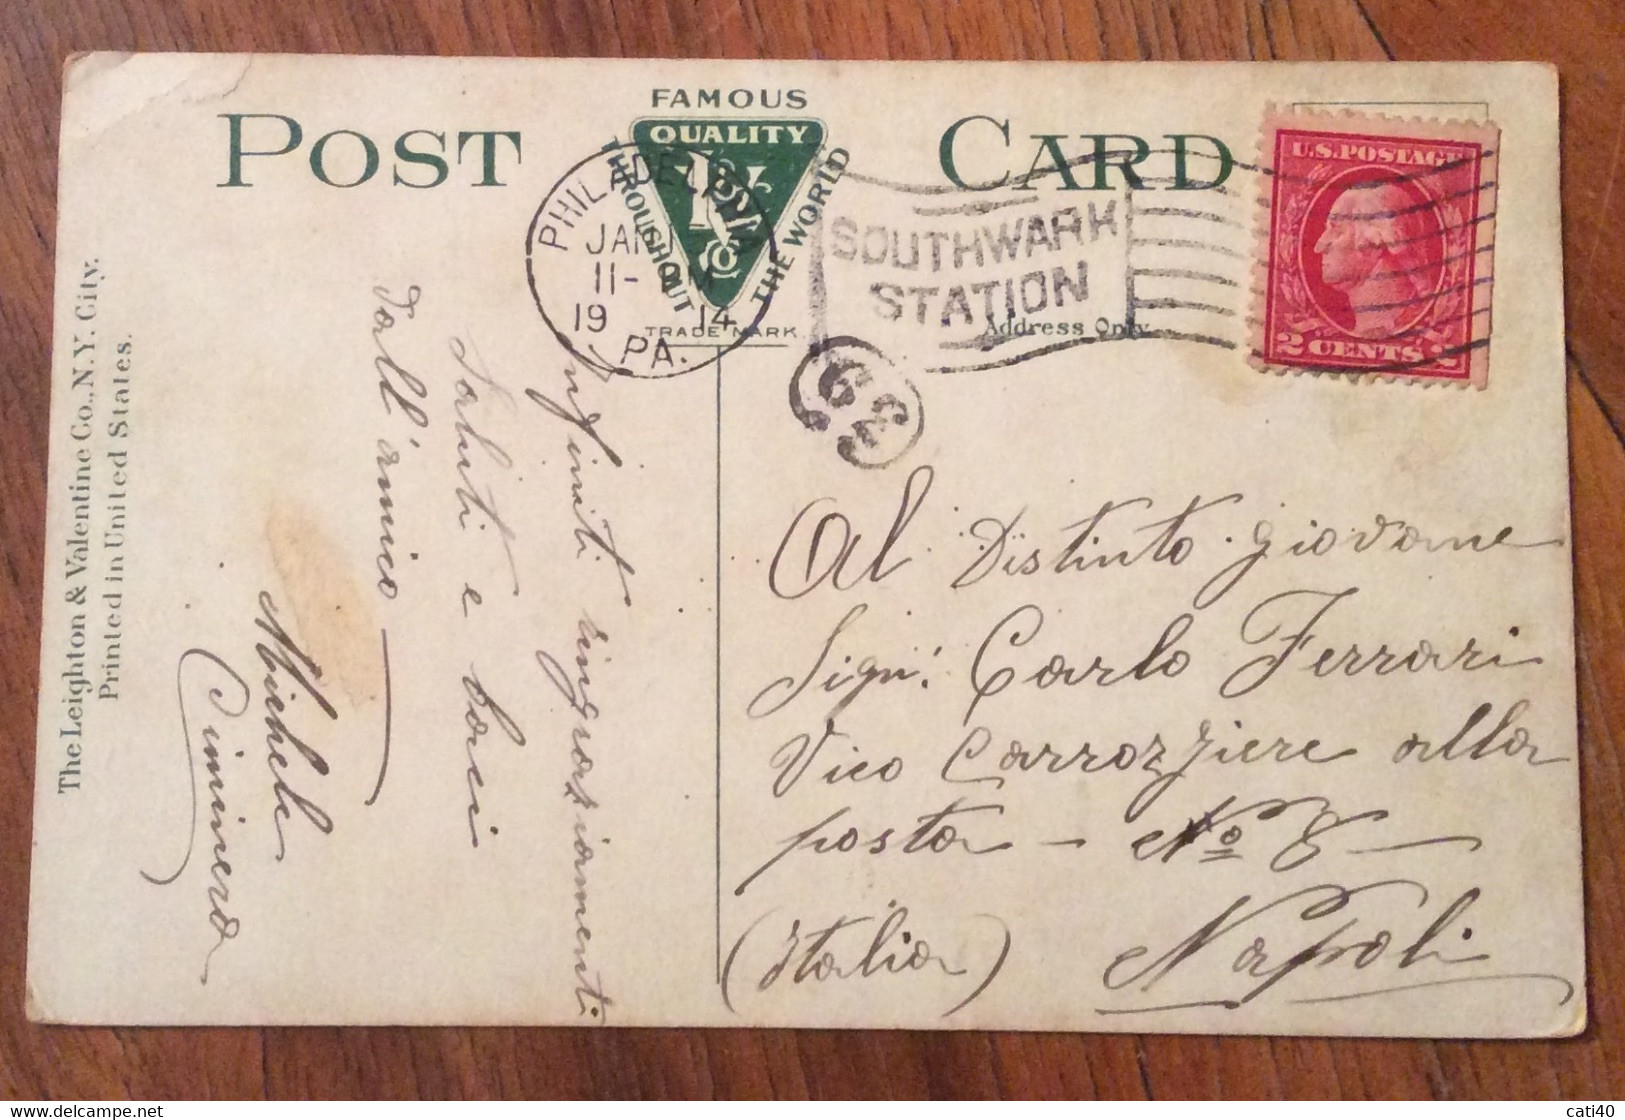 POST CARD
FAMOUS
QUALITY
THROUGHOUT THE WORLD
TRADE MARK
Address Only
PHILADELPHIA
JAN
11-
19 14
PA.
SOUTHWARK
STATION
39
U.S. POSTAGE
2 CENTS 2
The Leighton & Valentine Co., N.Y. City.
Printed in United States.
Infiniti ringraziamenti
Saluti e baci
dall'amico
Michele
Ciminera
Al Distinto giovane
Sign: Carlo Ferrari
Vico Carrozziere alla
posta - No 8
Napoli
(Italia)
cati40